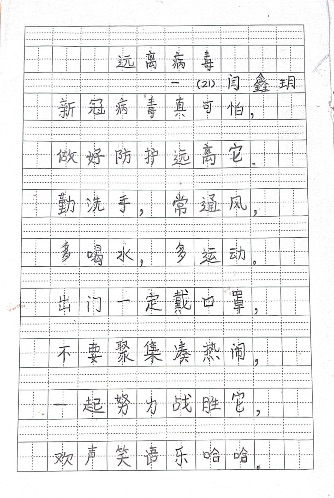 远离病毒
一 (21) 闫鑫玥
新冠病毒真可怕,
做好防护远离它。
勤洗手,常通风,
多喝水,多运动。
出门一定戴口罩,
不要聚集凑热闹,
一起努力战胜它,
欢声笑语乐哈哈。